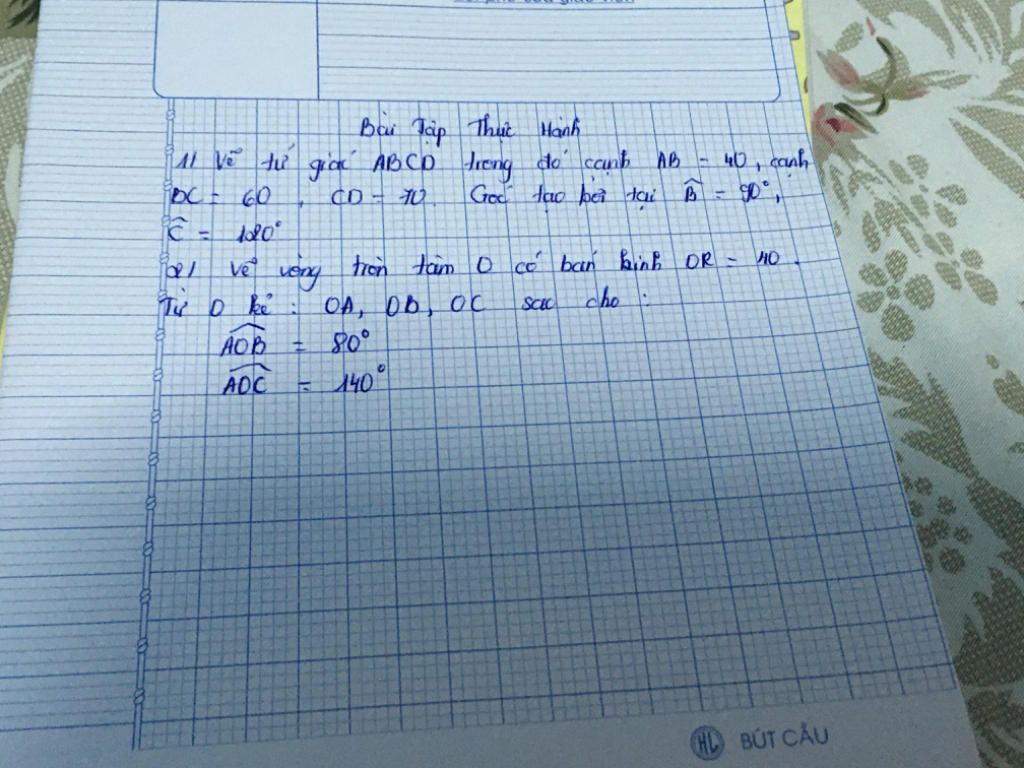 Lời phê của giáo viên
Bài Tập Thực Hành
1/ Vẽ tứ giác ABCD trong đó cạnh AB = 40, cạnh
BC = 60, CD = 70. Góc tạo bởi tại B̂ = 90°,
Ĉ = 120°
2/ Vẽ vòng tròn tâm O có bán kính OR = 40.
Từ O kẻ : OA, OB, OC sao cho :
AOB = 80°
AOC = 140°
HL BÚT CẨU